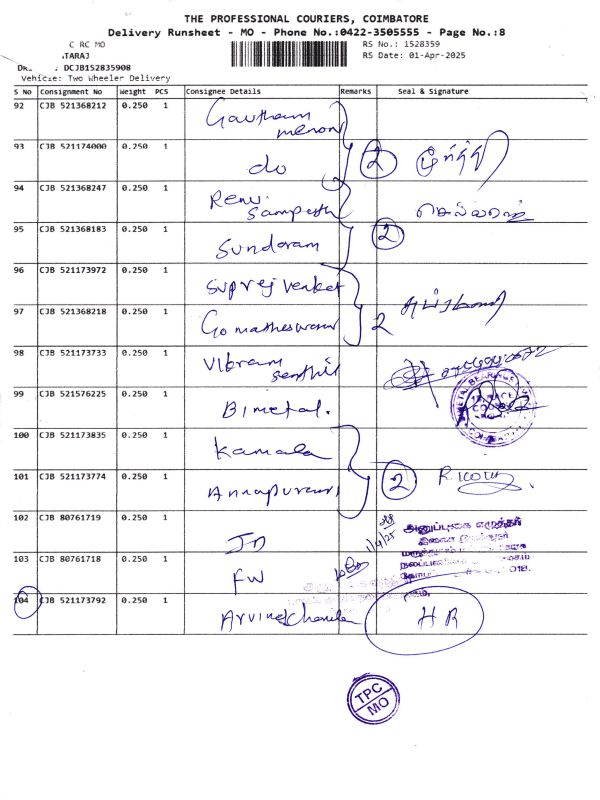 THE PROFESSIONAL COURIERS, COIMBATORE
Delivery Runsheet - MO - Phone No.:0422-3505555 - Page No.:8
C RC MO
RS No.: 1528359
TARAJ
RS Date: 01-Apr-2025
DRS DCJB152835908
Vehicle: Two Wheeler Delivery
S No Consignment No Weight PCS Consignee Details Remarks Seal & Signature
92 CJB 521368212 0.250 1 Gautham menon
93 CJB 521174000 0.250 1 do 2 மூர்த்தி
94 CJB 521368247 0.250 1 Renu Sampath செல்வராஜ்
95 CJB 521368183 0.250 1 Sundaram 2
96 CJB 521173972 0.250 1 Suprej Venket
97 CJB 521368218 0.250 1 Gomatheswaran 2
98 CJB 521173733 0.250 1 Vikram Senthil
99 CJB 521576225 0.250 1 Bimetal.
100 CJB 521173835 0.250 1 Kamala
101 CJB 521173774 0.250 1 Annapurani 2
102 CJB 80761719 0.250 1 JD 1/4/25
103 CJB 80761718 0.250 1 FW
104 CJB 521173792 0.250 1 Arvind Chandra HR
TPC
MO